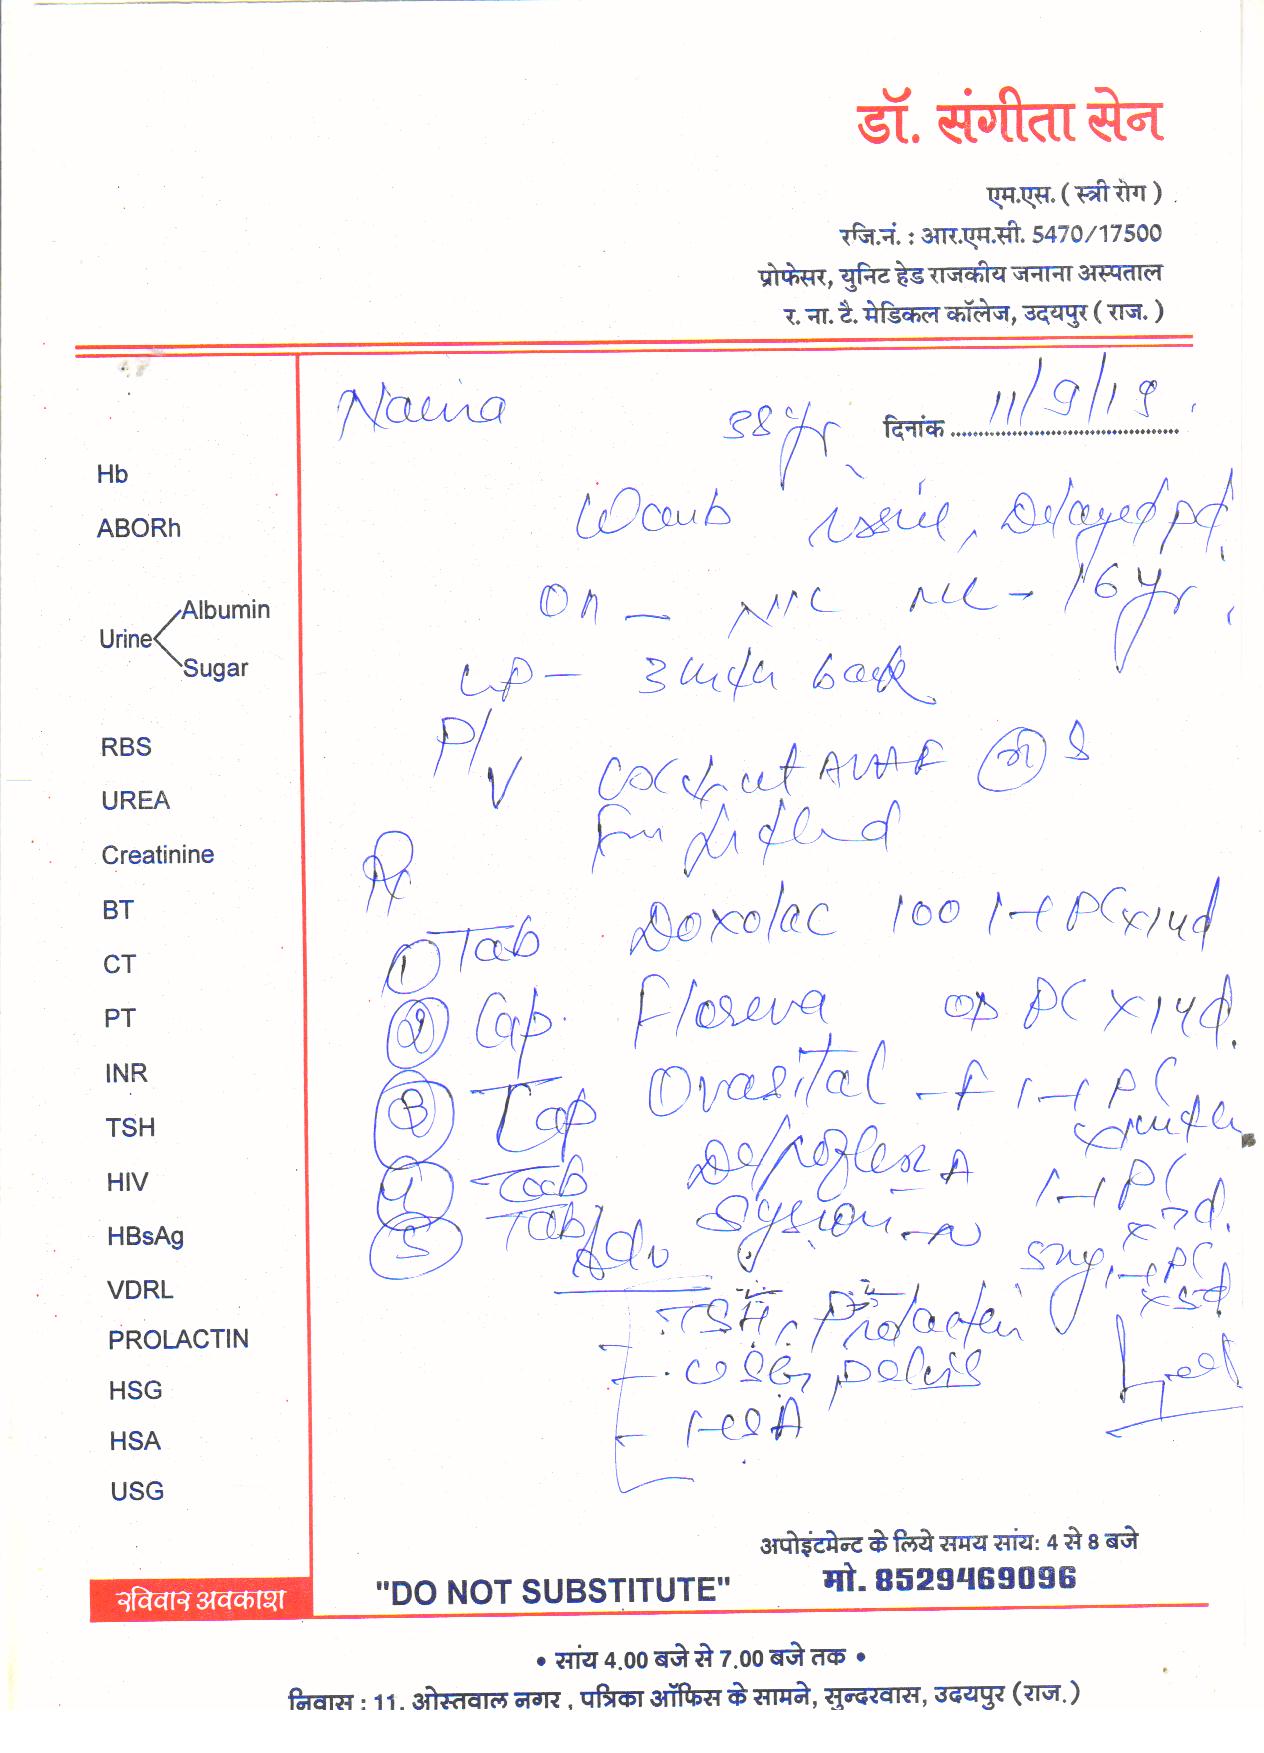 डॉ. संगीता सेन
एम.एस. ( स्त्री रोग )
रजि.नं. : आर.एम.सी. 5470/17500
प्रोफेसर, युनिट हेड राजकीय जनाना अस्पताल
र. ना. टै. मेडिकल कॉलेज, उदयपुर ( राज. )
Naina 38 yr दिनांक 11/9/19
Hb
ABORh
Urine Albumin
Sugar
RBS
UREA
Creatinine
BT
CT
PT
INR
TSH
HIV
HBsAg
VDRL
PROLACTIN
HSG
HSA
USG
issue, Delayed pd
16 yr
LP - 3 mnth back
P/V
Rx
1 Tab Doxolac 100 1-1 PC x 14d
2 Cap. Floreva OD PC x 14d.
3 Tab Ovasital - F 1-1 PC
4 Tab A 1-1 PC x 7d.
5 Tab Sysron-N 5mg 1-1 PC x 5d
Adv
TSH, Prolactin
- USG, pelvis
- HSA
अपोइंटमेन्ट के लिये समय सांय: 4 से 8 बजे
रविवार अवकाश "DO NOT SUBSTITUTE" मो. 8529469096
• सांय 4.00 बजे से 7.00 बजे तक •
निवास : 11, ओस्तवाल नगर , पत्रिका ऑफिस के सामने, सुन्दरवास, उदयपुर (राज.)